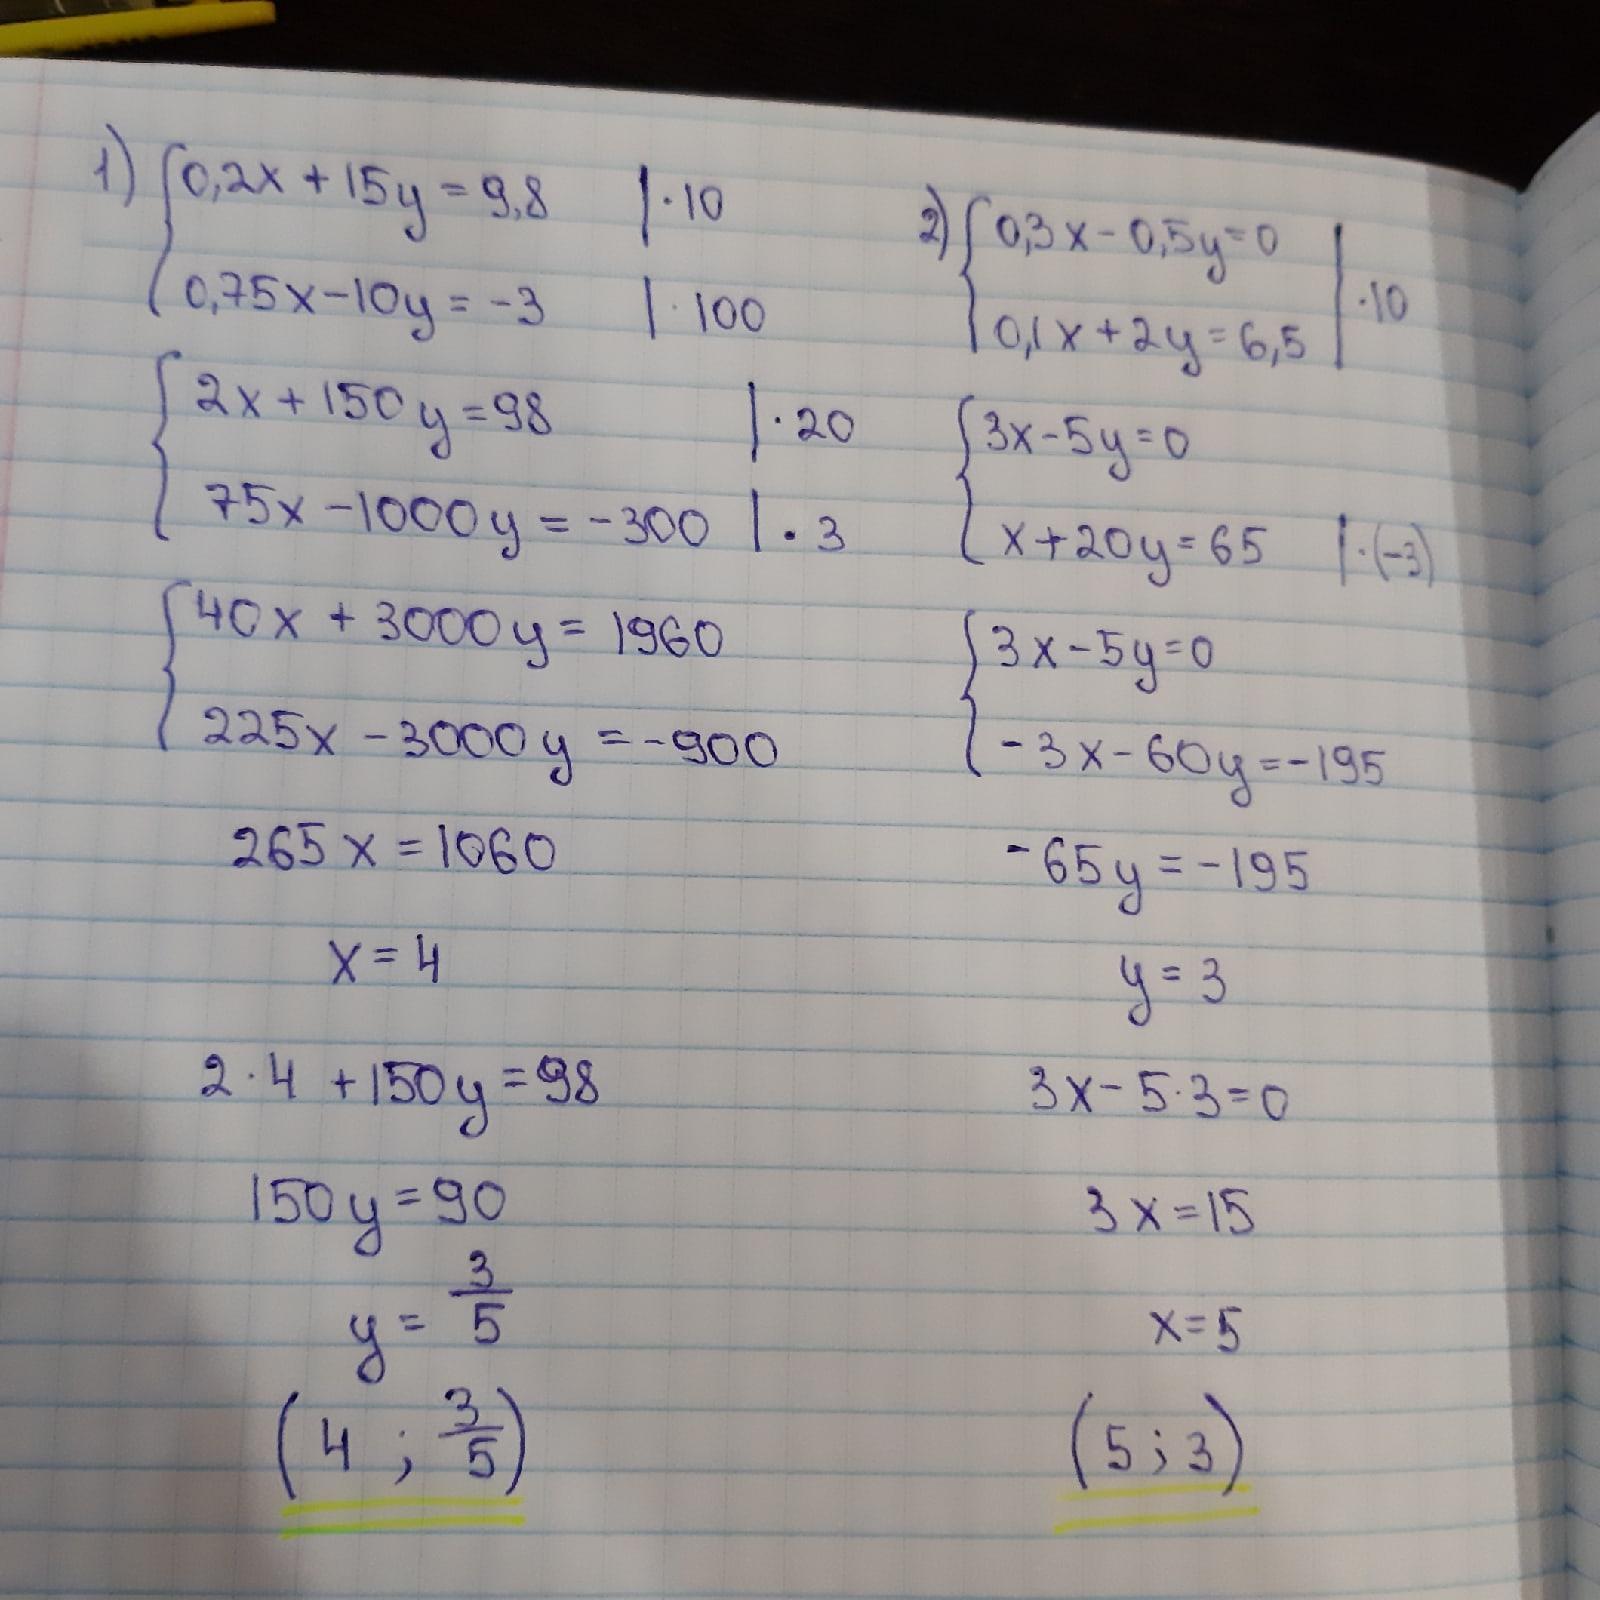 1) {0,2x + 15y = 9,8 | · 10
0,75x − 10y = −3 | · 100
{2x + 150y = 98 | · 20
75x − 1000y = −300 | · 3
{40x + 3000y = 1960
225x − 3000y = −900
265x = 1060
x = 4
2 · 4 + 150y = 98
150y = 90
y = 3/5
(4 ; 3/5)
2) {0,3x − 0,5y = 0
0,1x + 2y = 6,5 | · 10
{3x − 5y = 0
x + 20y = 65 | · (−3)
{3x − 5y = 0
−3x − 60y = −195
−65y = −195
y = 3
3x − 5 · 3 = 0
3x = 15
x = 5
(5 ; 3)